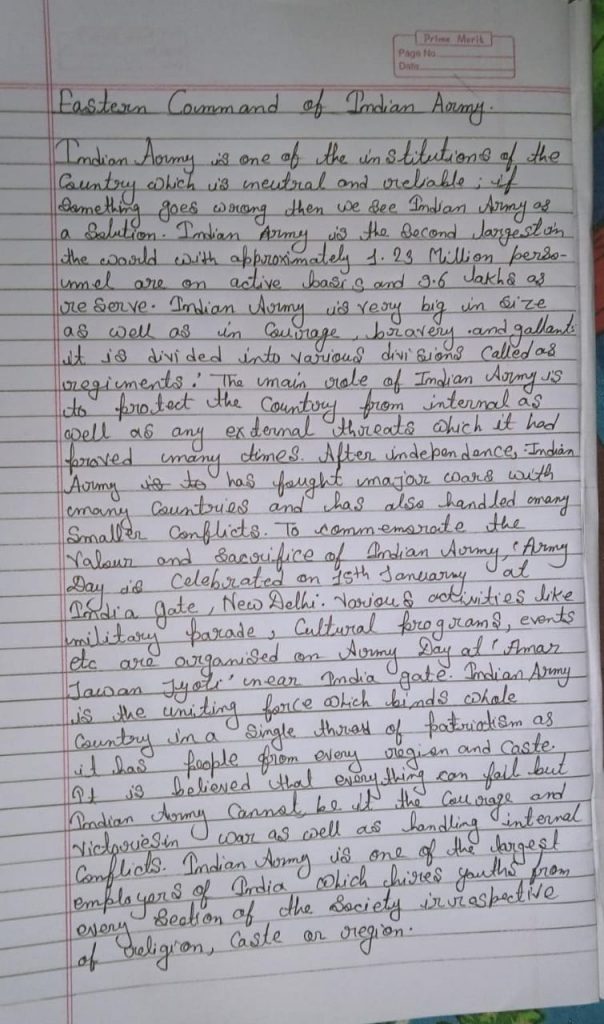 Prime Merit
Page No
Date
Eastern Command of Indian Army.
Indian Army is one of the institutions of the
Country which is neutral and reliable ; if
Something goes wrong then we see Indian Army as
a Solution. Indian Army is the Second largest in
the world with approximately 1.23 Million perso-
nnel are on active basis and 9.6 lakhs as
reserve. Indian Army is very big in size
as well as in Courage, bravery and gallant.
it is divided into various divisions Called as
regiments. The main role of Indian Army is
to protect the Country from internal as
well as any external threats which it had
proved many times. After independance, Indian
Army is to has fought major wars with
many Countries and has also handled many
Smaller Conflicts. To commemorate the
Valour and Sacrifice of Indian Army, 'Army
Day is Celebrated on 15th January at
India Gate, New Delhi. Various activities like
military parade, Cultural programs, events
etc are organised on Army Day at 'Amar
Jawan Jyoti' near India gate. Indian Army
is the uniting force which binds whole
Country in a Single thread of patriotism as
it has people from every region and Caste.
It is believed that everything can fail but
Indian Army Cannot be it the Courage and
Victories in war as well as handling internal
Conflicts. Indian Army is one of the largest
employers of India which hires youths from
every Section of the Society irrespective
of religion, Caste or region.